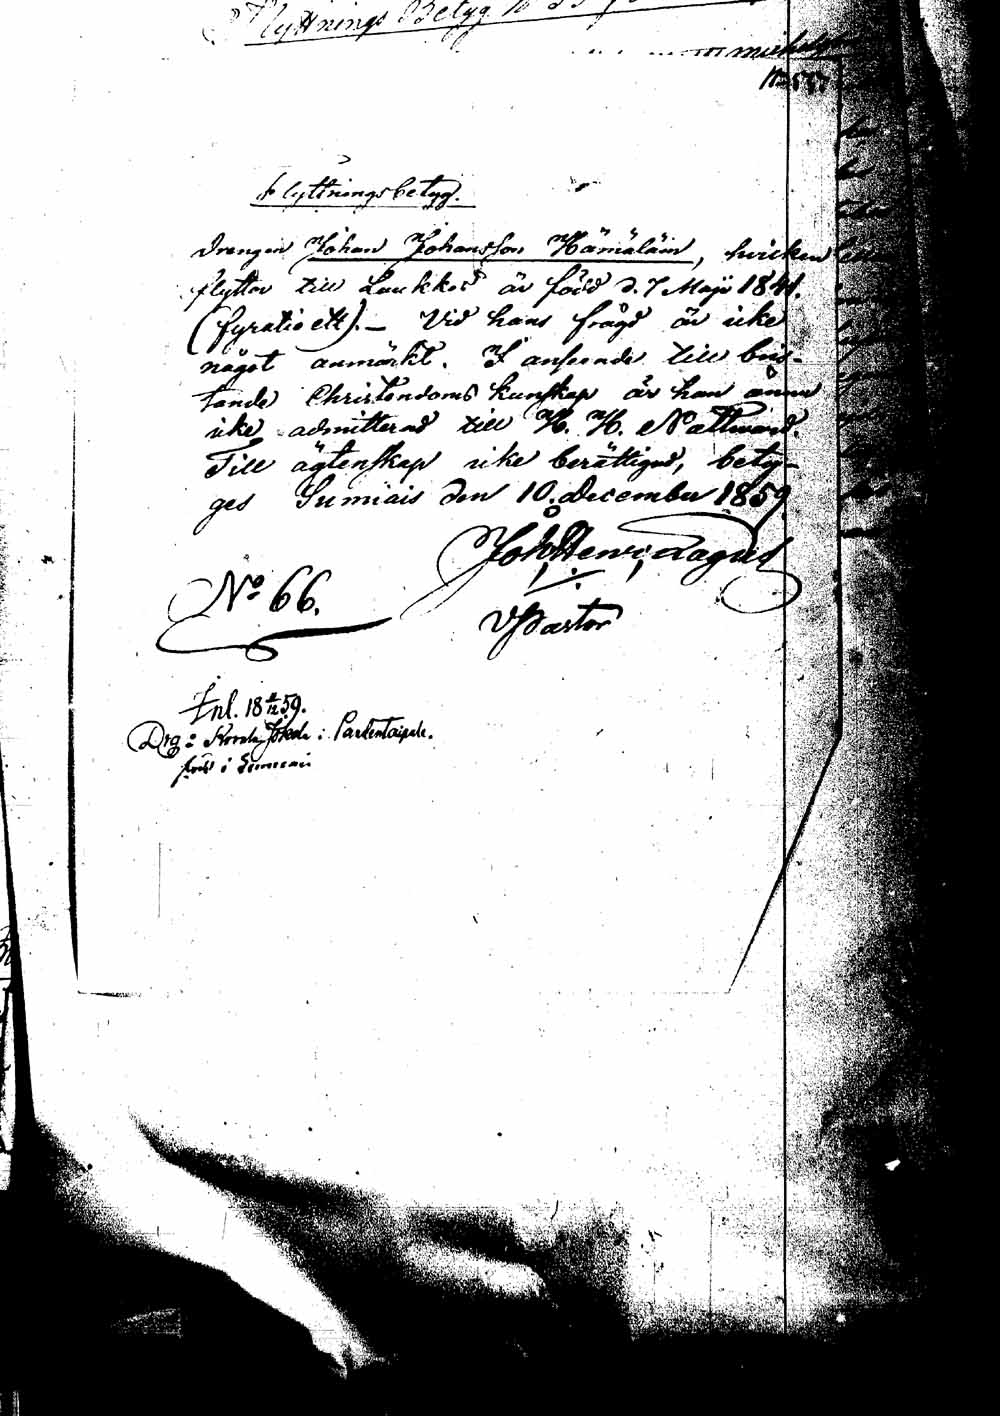 Flyttnings Betyg No 55
Flyttningsbetyg.
Drengen Johan Johansson Hämäläin, hvilken
flyttar till Laukkas är född d. 7 Maji 1841.
(fyratio ett). — Vid hans frägd är icke
något anmärkt. I anseende till bris-
tande Christendoms kunskap är han ännu
icke admitterad till H. H. Nattward.
Till ägtenskap icke berättigad, bety-
ges Sumiais den 10. December 1859
Joh. Henr. Lagus
VPastor
No 66.
Inl. 18 /12 59.
Drg: i Parlentaipale.
född i Sumiais